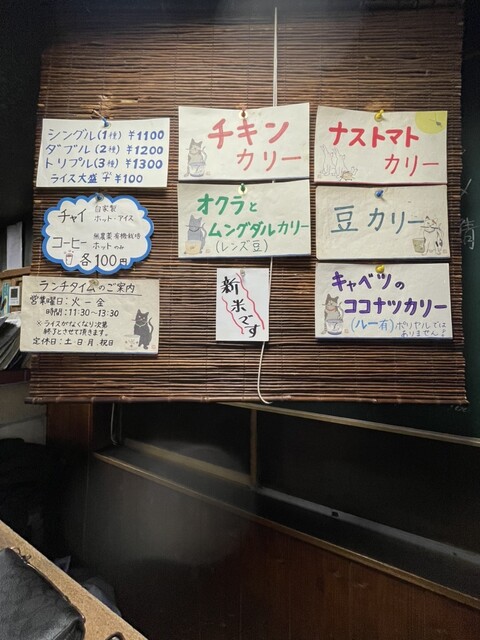 シングル(1種) ¥1100
ダブル(2種) ¥1200
トリプル(3種) ¥1300
ライス大盛 ¥100
チャイ 自家製
ホット・アイス
コーヒー 無農薬有機栽培
ホットのみ
各100円
ランチタイムのご案内
営業曜日:火ー金
時間:11:30~13:30
※ライスがなくなり次第
終了とさせて頂きます。
定休日:土・日・月.祝日
チキン
カリー
オクラと
ムングダルカリー
(レンズ豆)
新米です
ナストマト
カリー
豆カリー
キャベツの
ココナツカリー
(ルー有)ポリヤルでは
ありません!